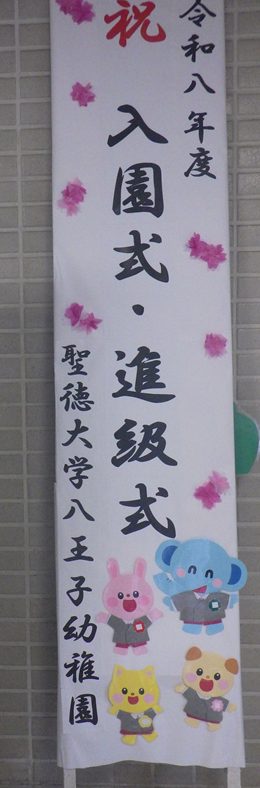 令和八年度
祝
入園式・進級式
聖徳大学八王子幼稚園